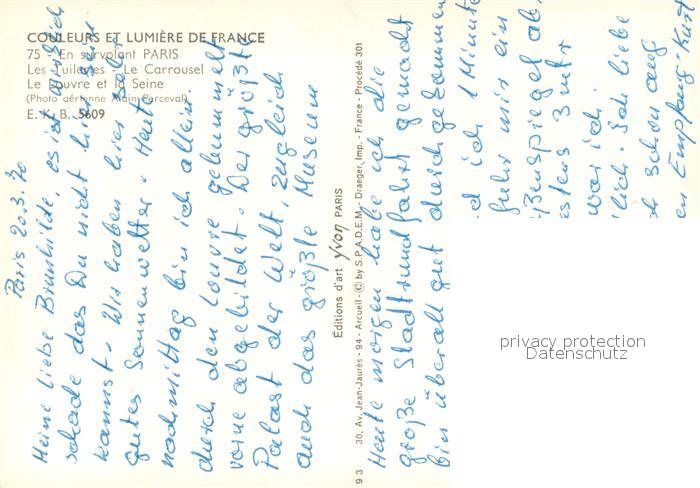 COULEURS ET LUMIÈRE DE FRANCE
75 - En survolant PARIS
Les Tuileries - Le Carrousel
Le Louvre et la Seine
(Photo aérienne Alain Perceval)
E. K. B. 5609
Paris 20.3.70
Meine liebe Brunhilde, es ist wirklich
schade das Du nicht hier sein
kannst. Wir haben hier sehr
gutes Sonnenwetter. Heute
nachmittag bin ich allein
durch den Louvre gebummelt
vorne abgebildet. Der größte
Palast der Welt, zugleich
auch das größte Museum
Editions d'art yvon PARIS
93 30, Av. Jean-Jaurès - 94 - Arcueil - © by S.P.A.D.E.M. - Draeger, Imp. - France - Procédé 301
Heute morgen habe ich die
große Stadtrundfahrt gemacht
bin überall gut durchgekommen
d ich 1 Minute
fuhr mir ein
ßenspiegel ab,
estens 3 mtr
war ich
lich. Ich liebe
schon auf
en Empfang. Kurt
privacy protection
Datenschutz